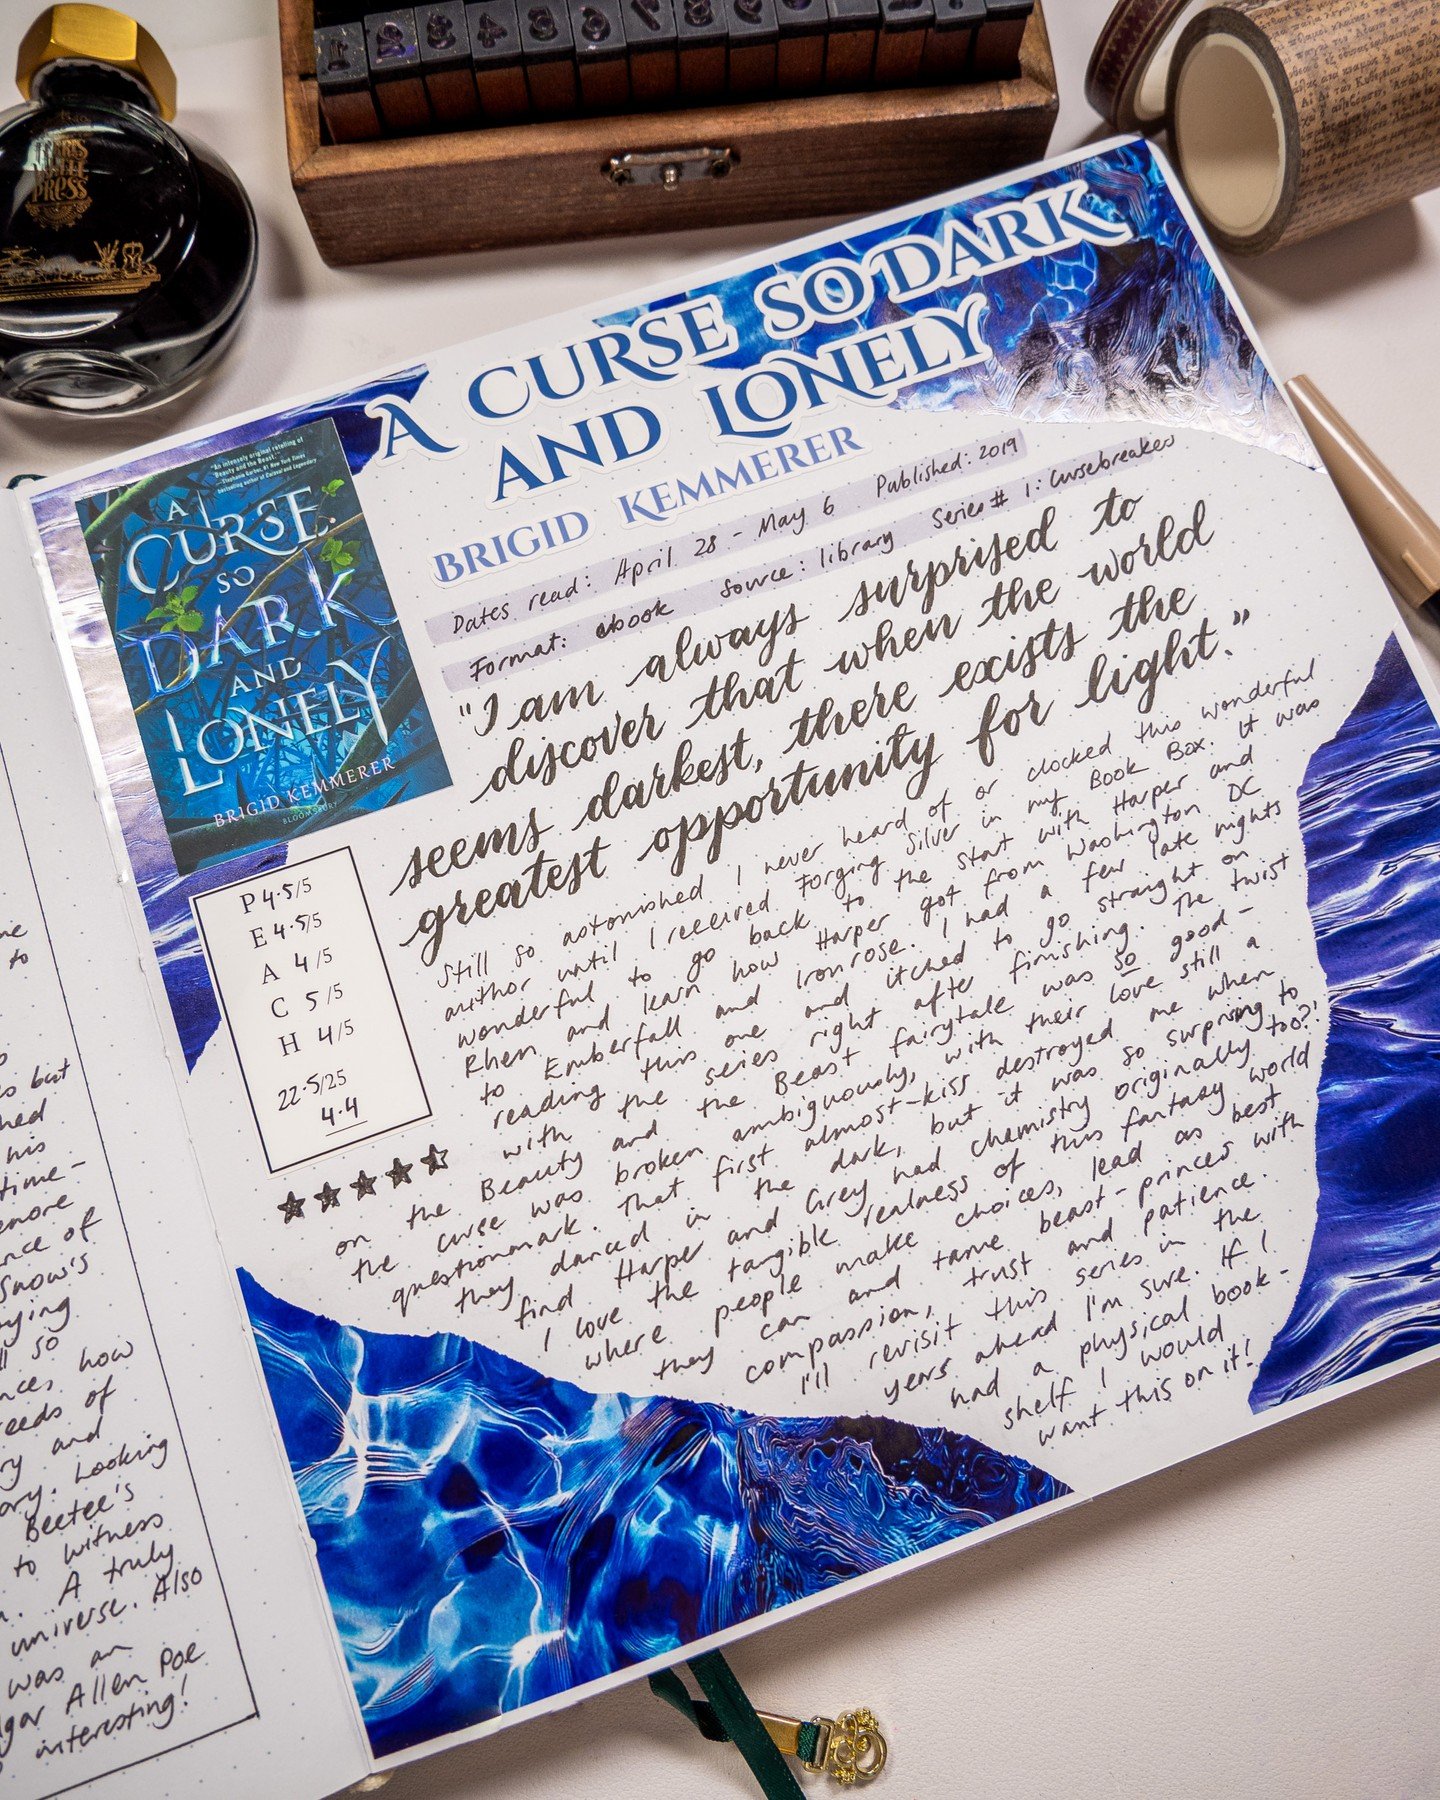 FERRIS WHEEL PRESS
1 2 3 4 5 6 7 8 9 0
A CURSE SO DARK
AND LONELY
BRIGID KEMMERER
Dates read: April 28 - May 6 Published: 2019
Format: ebook Source: library Series # 1: Cursebreaker
"An intensely original retelling of
Beauty and the Beast."
—Stephanie Garber, #1 New York Times
bestselling author of Caraval and Legendary
A
CURSE
SO
DARK
AND
LONELY
BRIGID KEMMERER
BLOOMSBURY
"I am always surprised to
discover that when the world
seems darkest, there exists the
greatest opportunity for light."
P 4.5/5
E 4.5/5
A 4/5
C 5/5
H 4/5
22.5/25
4.4
Still so astonished I never heard of or clocked this wonderful
author until I received Forging Silver in my Book Box. It was
wonderful to go back to the start with Harper and
Rhen and learn how Harper got from Washington DC
to Emberfall and Ironrose. I had a few late nights
reading this one and itched to go straight on
with the series right after finishing. The twist
on the Beauty and the Beast fairytale was so good-
the curse was broken ambiguously, with their love still a
questionmark. That first almost-kiss destroyed me when
they danced in the dark, but it was so surprising to
find Harper and Grey had chemistry originally too?!
I love the tangible realness of this fantasy world
where people make choices, lead as best
they can and tame beast-princes with
compassion, trust and patience.
I'll revisit this series in the
years ahead I'm sure. If I
had a physical book-
shelf I would
want this on it!
me
to
s but
hed
his
time-
more
ance of
Snow's
ying
ll so
nces, how
reeds of
ry and
ary. Looking
Beetee's
to witness
A truly
universe. Also
was an
gar Allen Poe
interesting!